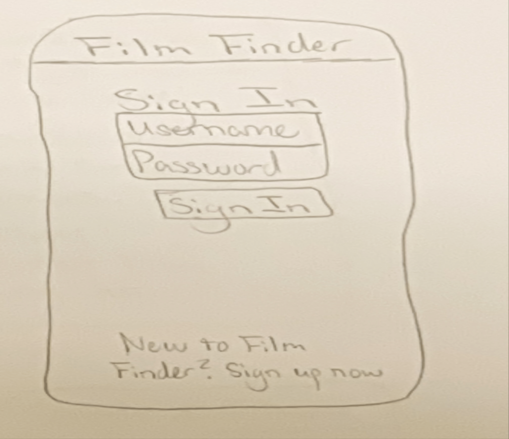 Film Finder
Sign In
Username
Password
Sign In
New to Film
Finder? Sign up now